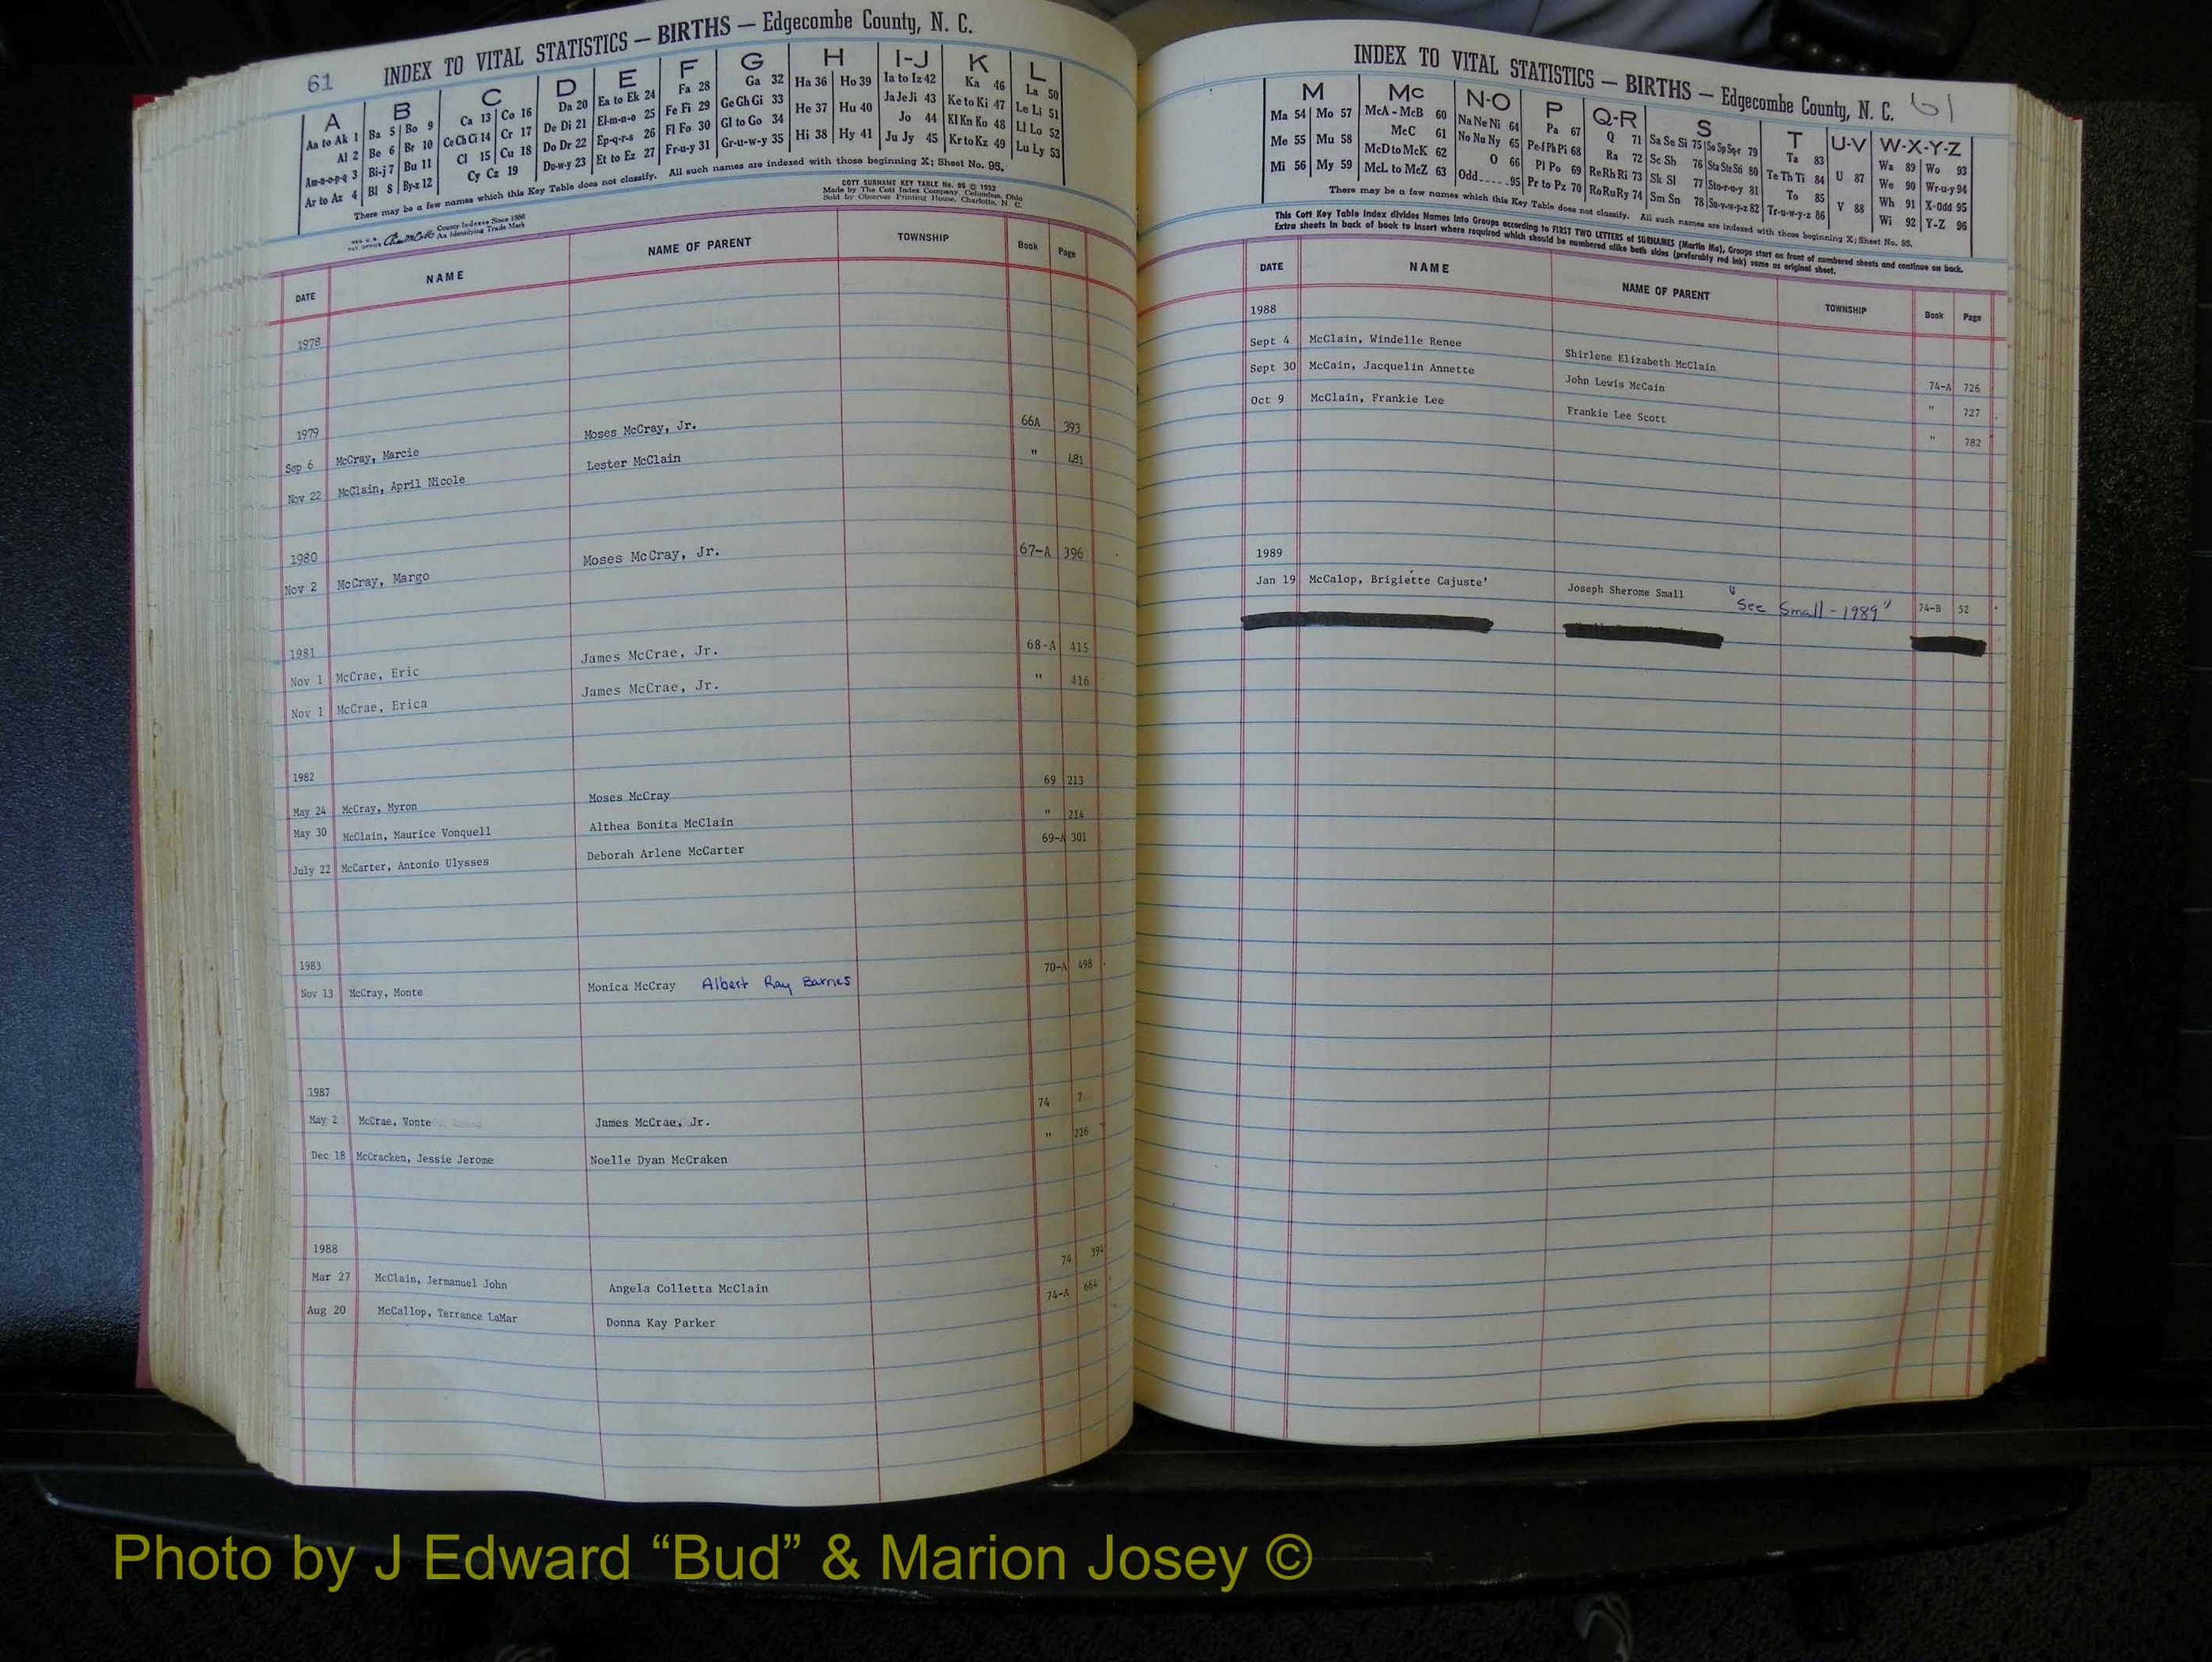 61 INDEX TO VITAL STATISTICS — BIRTHS — Edgecombe County, N. C.
A B C D E F G H I-J K L
Aa to Ak 1 Ba 5 Bo 9 Ca 13 Co 16 Da 20 Ea to Ek 24 Fa 28 Ga 32 Ha 36 Ho 39 Ia to Iz 42 Ka 46 La 50
Al 2 Be 6 Br 10 Ce Ch Ci 14 Cr 17 De Di 21 El-m-n-o 25 Fe Fi 29 Ge Gh Gi 33 He 37 Hu 40 Ja Je Ji 43 Ke to Ki 47 Le Li 51
Am-n-o-p-q 3 Bi-j 7 Bu 11 Cl 15 Cu 18 Do Dr 22 Ep-q-r-s 26 Fl Fo 30 Gl to Go 34 Hi 38 Hy 41 Jo 44 Kl Kn Ko 48 Ll Lo 52
Ar to Az 4 Bl 8 By-z 12 Cy Cz 19 Du-w-y 23 Et to Ez 27 Fr-u-y 31 Gr-u-w-y 35 Ju Jy 45 Kr to Kz 49 Lu Ly 53
There may be a few names which this Key Table does not classify. All such names are indexed with those beginning X; Sheet No. 95.
County Indexes Since 1888
An Identifying Trade Mark
COTT SURNAME KEY TABLE No. 96 © 1932
Made by The Cott Index Company, Columbus, Ohio
Sold by Observer Printing House, Charlotte, N. C.
DATE NAME NAME OF PARENT TOWNSHIP Book Page
1978
1979
Sep 6 McCray, Marcie Moses McCray, Jr. 66A 393
Nov 22 McClain, April Nicole Lester McClain " 481
1980
Nov 2 McCray, Margo Moses McCray, Jr. 67-A 396
1981
Nov 1 McCrae, Eric James McCrae, Jr. 68-A 415
Nov 1 McCrae, Erica James McCrae, Jr. " 416
1982
May 24 McCray, Myron Moses McCray 69 213
May 30 McClain, Maurice Vonquell Althea Bonita McClain " 214
July 22 McCarter, Antonio Ulysses Deborah Arlene McCarter 69-A 301
1983
Nov 13 McCray, Monte Monica McCray Albert Ray Barnes 70-A 498
1987
May 2 McCrae, Vonte James McCrae, Jr. 74 7
Dec 18 McCracken, Jessie Jerome Noelle Dyan McCraken " 226
1988
Mar 27 McClain, Jermanuel John Angela Colletta McClain 74
Aug 20 McCallop, Terrance LaMar Donna Kay Parker 74-A 664
INDEX TO VITAL STATISTICS — BIRTHS — Edgecombe County, N. C. 61
M Mc N-O P Q-R S T U-V W-X-Y-Z
Ma 54 Mo 57 McA - McB 60 Na Ne Ni 64 Pa 67 Q 71 Sa Se Si 75 So Sp Sq-r 79 Ta 83 U 87 Wa 89 Wo 93
Me 55 Mu 58 McC 61 No Nu Ny 65 Pe-f Ph Pi 68 Ra 72 Sc Sh 76 Sta Ste Sti 80 Te Th Ti 84 V 88 We 90 Wr-u-y 94
Mi 56 My 59 McD to McK 62 O 66 Pl Po 69 Re Rh Ri 73 Sk Sl 77 Sto-r-u-y 81 To 85 Wh 91 X-Odd 95
McL to McZ 63 Odd 95 Pr to Pz 70 Ro Ru Ry 74 Sm Sn 78 Su-v-w-y-z 82 Tr-u-w-y-z 86 Wi 92 Y-Z 96
There may be a few names which this Key Table does not classify. All such names are indexed with those beginning X; Sheet No. 95.
This Cott Key Table Index divides Names into Groups according to FIRST TWO LETTERS of SURNAMES (Martin Ma), Groups start on front of numbered sheets and continue on back.
Extra sheets in back of book to insert where required which should be numbered alike both sides (preferably red ink) same as original sheet.
DATE NAME NAME OF PARENT TOWNSHIP Book Page
1988
Sept 4 McClain, Windelle Renee Shirlene Elizabeth McClain 74-A 726
Sept 30 McCain, Jacquelin Annette John Lewis McCain " 727
Oct 9 McClain, Frankie Lee Frankie Lee Scott " 782
1989
Jan 19 McCalop, Brigiette Cajuste' Joseph Sherome Small "See Small - 1989" 74-B 52
Photo by J Edward “Bud” & Marion Josey ©